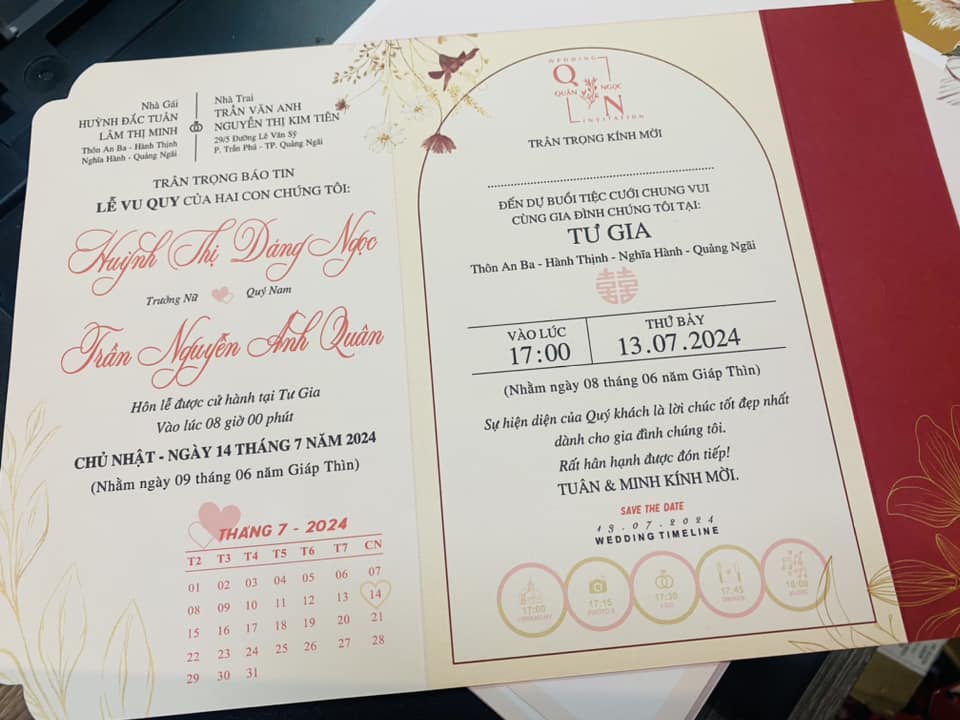 Nhà Gái
HUỲNH ĐẮC TUÂN
LÂM THỊ MINH
Thôn An Ba - Hành Thịnh
Nghĩa Hành - Quảng Ngãi
Nhà Trai
TRẦN VĂN ANH
NGUYỄN THỊ KIM TIÊN
29/5 Đường Lê Văn Sỹ
P. Trần Phú - TP. Quảng Ngãi
TRÂN TRỌNG BÁO TIN
LỄ VU QUY CỦA HAI CON CHÚNG TÔI:
Huỳnh Thị Dáng Ngọc
Trưởng Nữ Quý Nam
Trần Nguyễn Anh Quân
Hôn lễ được cử hành tại Tư Gia
Vào lúc 08 giờ 00 phút
CHỦ NHẬT - NGÀY 14 THÁNG 7 NĂM 2024
(Nhằm ngày 09 tháng 06 năm Giáp Thìn)
THÁNG 7 - 2024
T2 T3 T4 T5 T6 T7 CN
01 02 03 04 05 06 07
08 09 10 11 12 13 14
15 16 17 18 19 20 21
22 23 24 25 26 27 28
29 30 31
WEDDING
Q
QUÂN NGỌC
N
INVITATION
TRÂN TRỌNG KÍNH MỜI
ĐẾN DỰ BUỔI TIỆC CƯỚI CHUNG VUI
CÙNG GIA ĐÌNH CHÚNG TÔI TẠI:
TƯ GIA
Thôn An Ba - Hành Thịnh - Nghĩa Hành - Quảng Ngãi
囍
VÀO LÚC
17:00
THỨ BẢY
13.07.2024
(Nhằm ngày 08 tháng 06 năm Giáp Thìn)
Sự hiện diện của Quý khách là lời chúc tốt đẹp nhất
dành cho gia đình chúng tôi.
Rất hân hạnh được đón tiếp!
TUÂN & MINH KÍNH MỜI.
SAVE THE DATE
13.07.2024
WEDDING TIMELINE
17:00
CEREMONY
17:15
17:30
I DO
17:45
DINNER
18:00
MUSIC